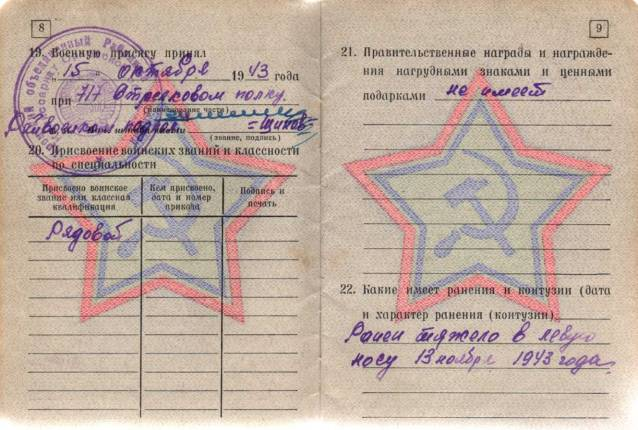 8
19. Военную присягу принял
15 октября 1943 года
при 717 Стрелковом полку.
(наименование части)
Райвоенком
(звание, подпись)
20. Присвоение воинских званий и классности
по специальности
Присвоено воинское звание или классная квалификация
Кем присвоено, дата и номер приказа
Подпись и печать
Рядовой
9
21. Правительственные награды и награжде-
ния нагрудными знаками и ценными
подарками не имеет
22. Какие имеет ранения и контузии (дата
и характер ранения (контузии).
Ранен тяжело в левую
ногу 13 ноября 1943 года.